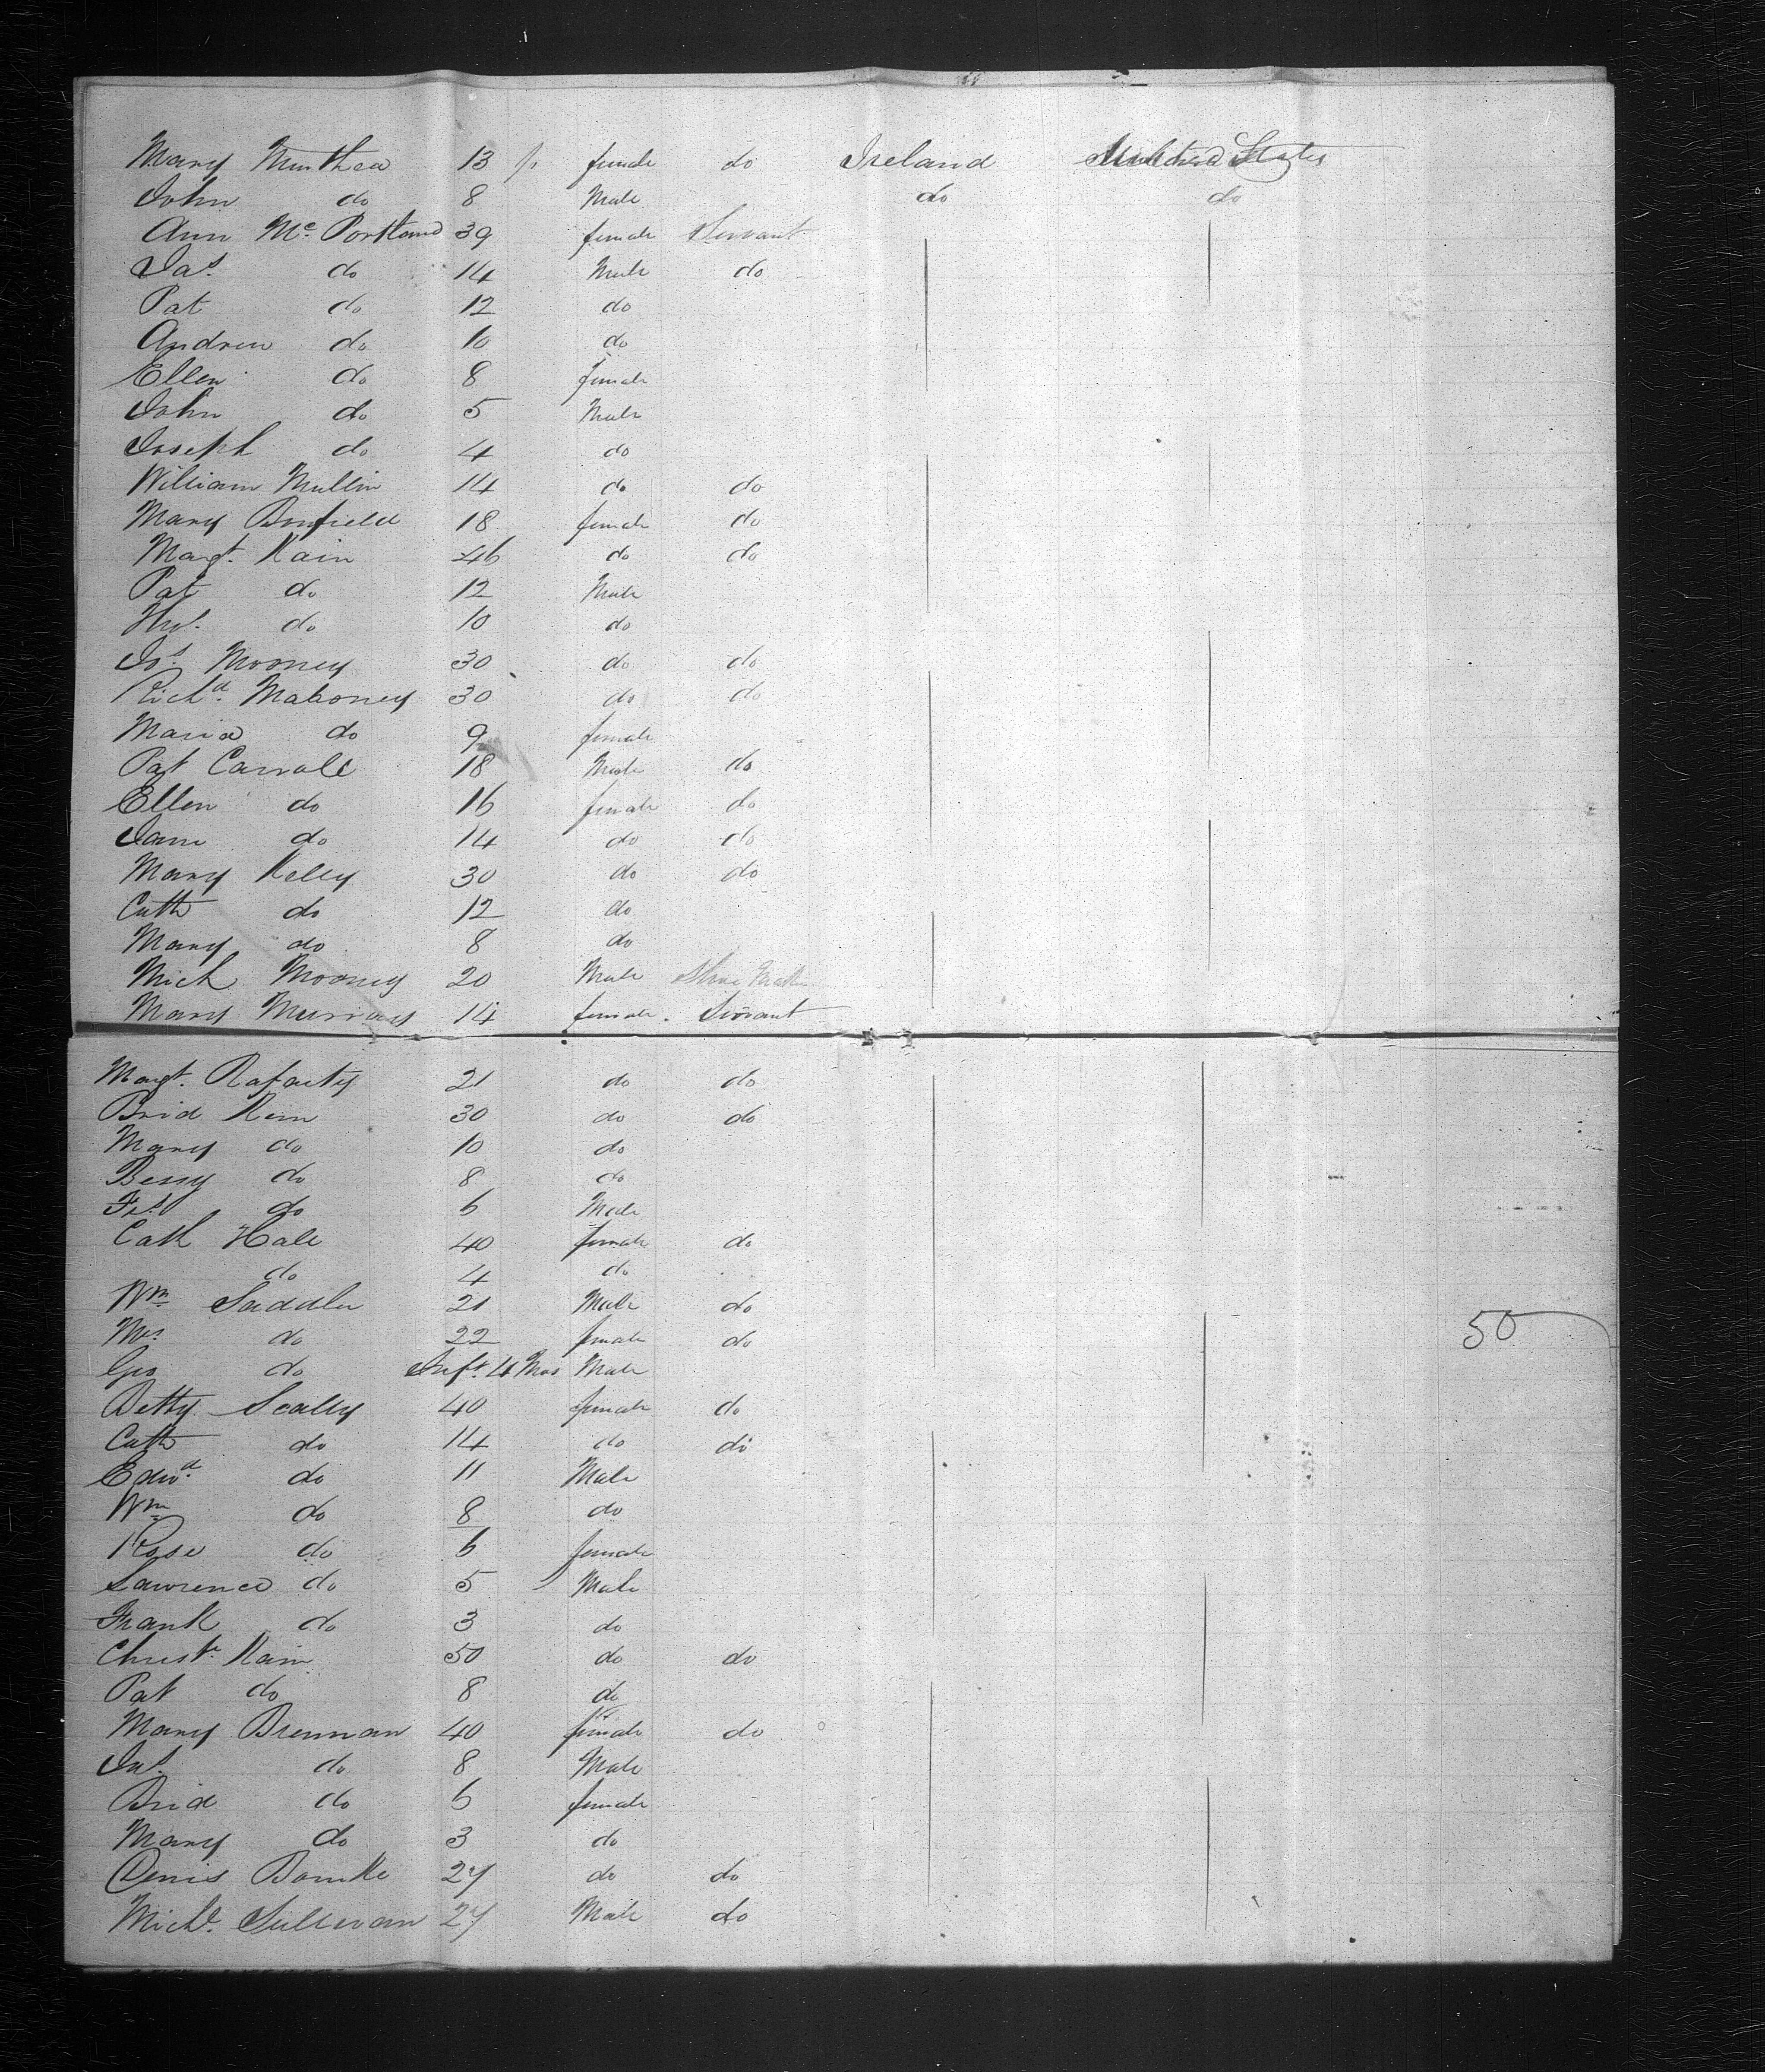 Mary Murthea 13 female do Ireland United States
John do 8 Male do do
Ann Mc Portland 39 female Servant
Jas. do 14 Male do
Pat do 12 do
Andrew do 10 do
Ellen do 8 female
John do 5 Male
Joseph do 4 do
William Mullin 14 do do
Mary Bonfield 18 female do
Margt. Kain 46 do do
Pat do 12 Male
Ths. do 10 do
Jos. Mooney 30 do do
Richd. Mahoney 30 do do
Maria do 9 female
Pat Carroll 18 Male do
Ellen do 16 female do
Jane do 14 do do
Mary Kelly 30 do do
Cath do 12 do
Mary do 8 do
Mich Mooney 20 Male Shoe Mak
Mary Murray 14 female Servant
Margt. Rafarty 21 do do
Brid Kein 30 do do
Mary do 10 do
Bessy do 8 do
do 6 Male
Cath Hale 40 female do
do 4 do
Wm Saddler 21 Male do
Mrs do 22 female do
Geo do Inft. 4 Mos Male
Betty Scally 40 female do
Cath do 14 do do
Edwd. do 11 Male
Wm do 8 do
Rose do 6 female
Lawrence do 5 Male
Frank do 3 do
Christr. Kain 50 do do
Pat do 8 do
Mary Brennan 40 female do
Jas. do 8 Male
Brid do 6 female
Mary do 3 do
Denis Bourke 27 do do
Michl. Sullivan 27 Male do
50